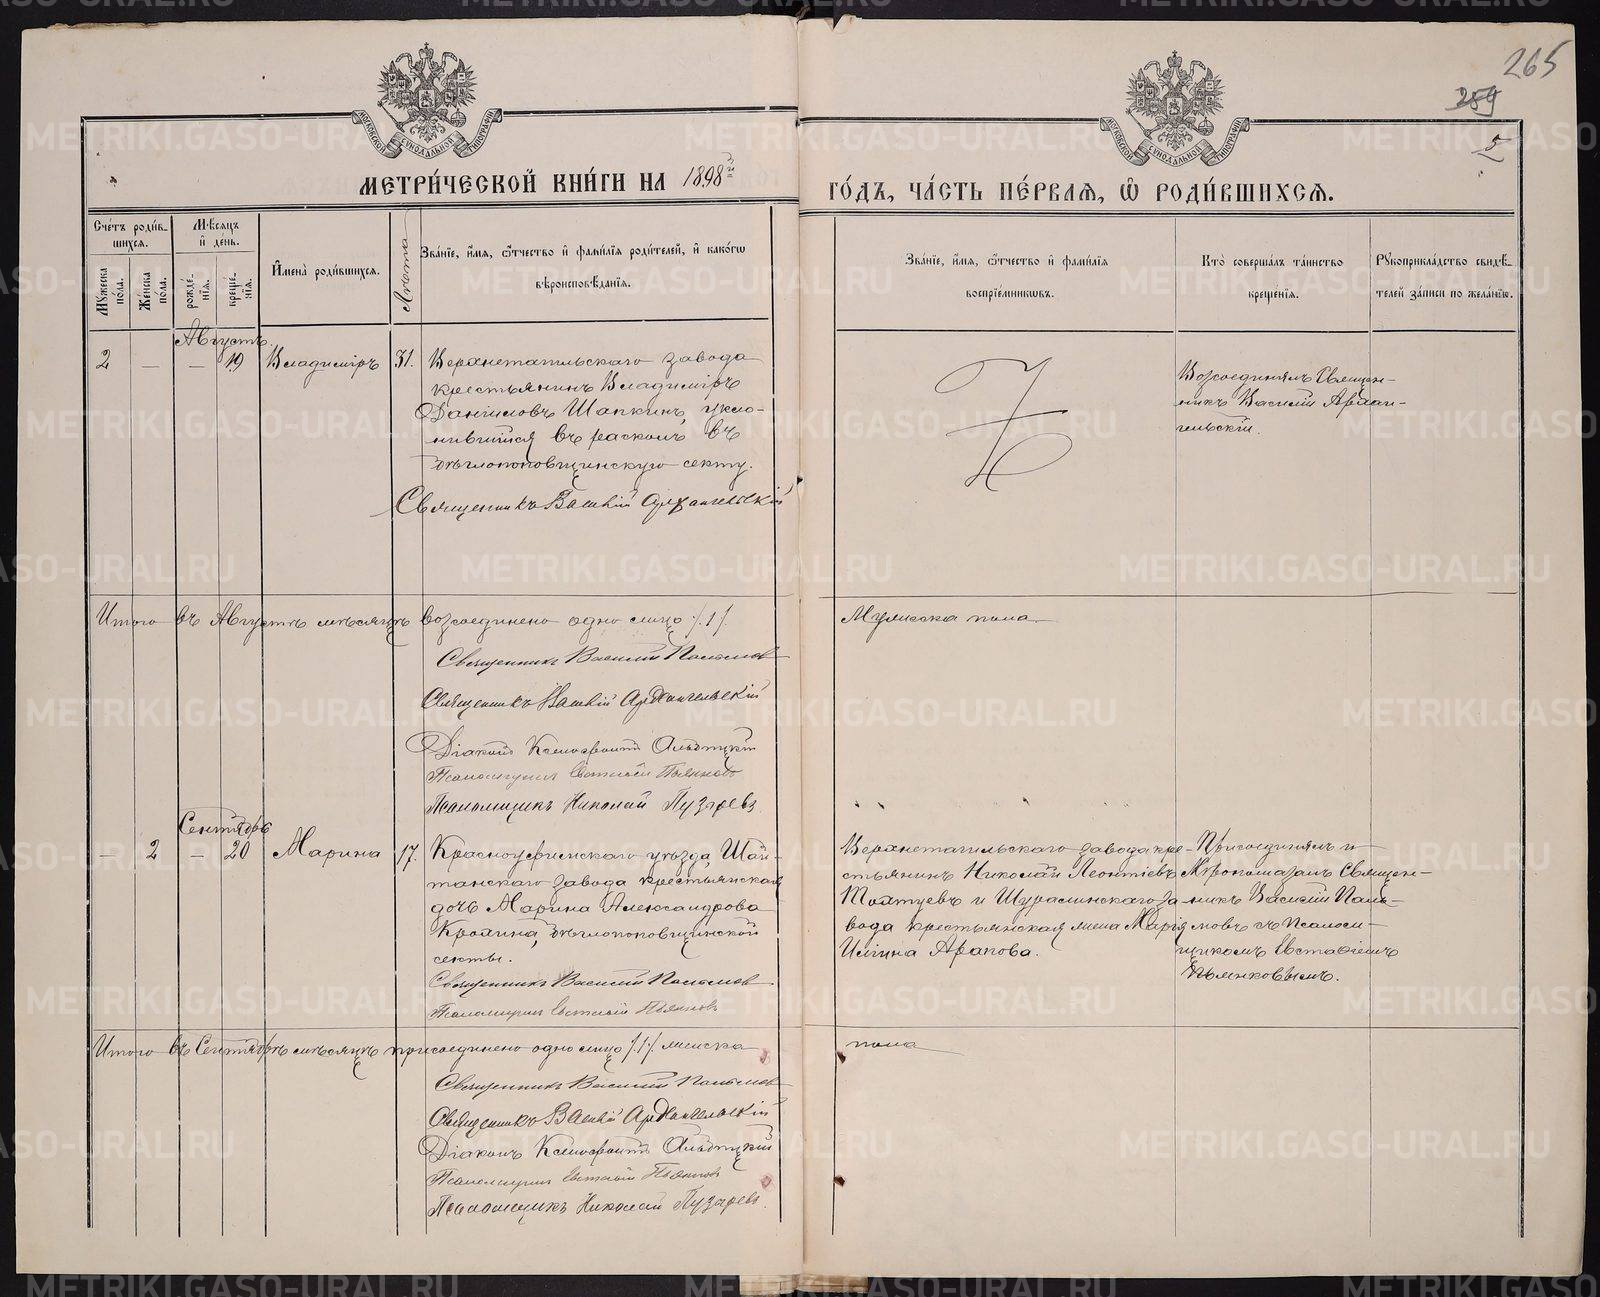 265
259
5
МОСКОВСКОЙ СѴНОДАЛЬНОЙ ТИПОГРАФІИ
МОСКОВСКОЙ СѴНОДАЛЬНОЙ ТИПОГРАФІИ
МЕТРИ́ЧЕСКОЙ КНИ́ГИ НА 1898й
ГО́ДЪ, ЧА́СТЬ ПЕ́РВАѦ, Ѽ РОДИ́ВШИХСѦ.
Сче́тъ роди́в-
шихся.
Мѣ́сяцъ
и҆ де́нь.
Мꙋ́жеска пола.
Же́нска пола.
рожде́-
нїя.
креще́-
нїя.
И҆мена̀ роди́вшихся.
Лѣта
Зва́нїе, и҆́мя, ѻ҆́тчество и҆ фами́лїя роди́телей, и҆ како́гѡ
вѣроисповѣ́данїя.
Зва́нїе, и҆́мя, ѻ҆́тчество и҆ фами́лїя
воспрїе́мниковъ.
Кто̀ соверша́лъ та́инство
креще́нїя.
Рꙋкоприкла́дство свидѣ́-
телей за́писи по жела́нїю.
Августъ.
2 — — 19 Владиміръ 31. Верхнетагильскаго завода
крестьянинъ Владиміръ
Даниловъ Шапкинъ, укло-
нившійся въ расколъ въ
бѣглопоповщинскую секту.
Священникъ Василій Архангельскій
Возсоединялъ Священ-
никъ Василій Архан-
гельскій.
Итого въ Августѣ мѣсяцѣ возсоединено одно лицо /.1/.
Мужеска пола
Священникъ Василій
Священникъ Василій Архангельскій
Діаконъ Ксенофонтъ
Псаломщикъ Евстафій Пьянковъ
Псаломщикъ Николай Пузыревъ
Сентябрь
— 2 — 20 Марина 17. Красноуфимскаго уѣзда, Шай-
танскаго завода крестьянская
дочь Марина Александрова
бѣглопоповщинской
секты.
Священникъ Василій
Псаломщикъ Евстафій Пьянковъ
Верхнетагильскаго завода кре-
стьянинъ Николай Леонтіевъ
и Шуралинскаго за-
вода крестьянская жена Марія
Арапова.
Присоединялъ и
Мѵропомазалъ Священ-
никъ Василій
съ Псалом-
щикомъ Евстафіемъ
Пьянковымъ.
Итого въ Сентябрѣ мѣсяцѣ присоединено одно лицо /.1/. женска
пола
Священникъ Василій
Священникъ Василій Архангельскій
Діаконъ Ксенофонтъ
Псаломщикъ Евстафій Пьянковъ
Псаломщикъ Николай Пузыревъ
METRIKI.GASO-URAL.RU